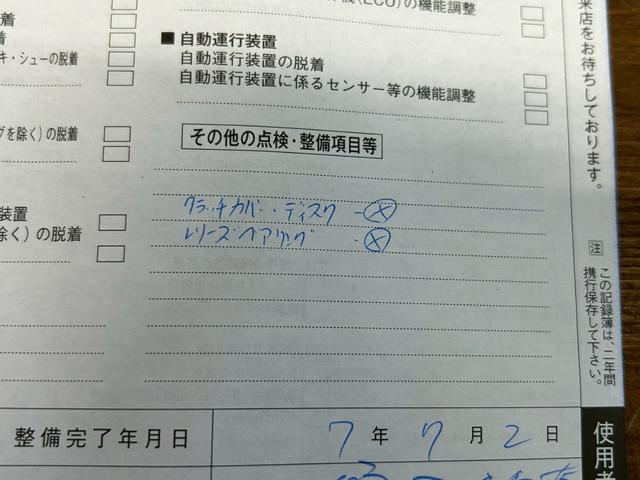 の機能調整
■ 自動運行装置
自動運行装置の脱着
自動運行装置に係るセンサー等の機能調整
キ・シューの脱着
グを除く)の脱着
その他の点検・整備項目等
クラッチカバー・ディスク -Ⓧ
レリーズベアリング ・Ⓧ
装置
除く)の脱着
整備完了年月日 7年 7月 2日
来店をお待ちしております。
注 この記録簿は、二年間
携行保存して下さい。
使用者